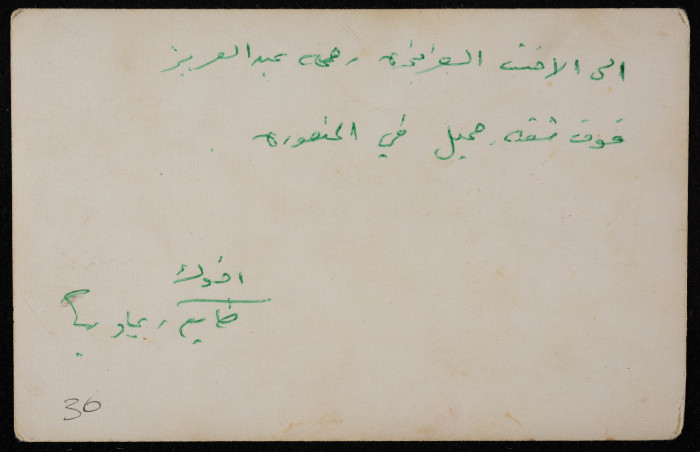 الى الاخت العزيزه رحمه عبد العزيز
فوق شقه جميل في المنصوره
اخوك
30